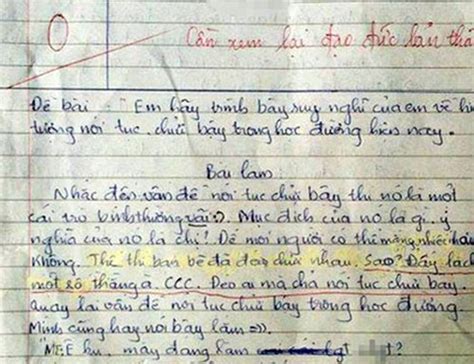 0
Cần xem lại đạo đức bản thâ
Đề bài : "Em hãy trình bày suy nghĩ của em về hi
tượng nói tục, chửi bậy trong học đường hiện nay.
Bài làm
Nhắc đến vấn đề nói tục chửi bậy thì nó là một
cái trò bình thường vãi :). Mục đích của nó là gì. ý
nghĩa của nó là chi! Để mọi người có thể mắng nhiếc
không. Thế thì bạn bè đã chửi nhau. Sao? Đấy
một số thằng à. CCC. Đéo ai mà chả nói tục chửi bậy.
quay lại vấn đề nói tục chửi bậy trong học đường.
Mình cũng hay nói bậy lắm =)).
mày đang làm